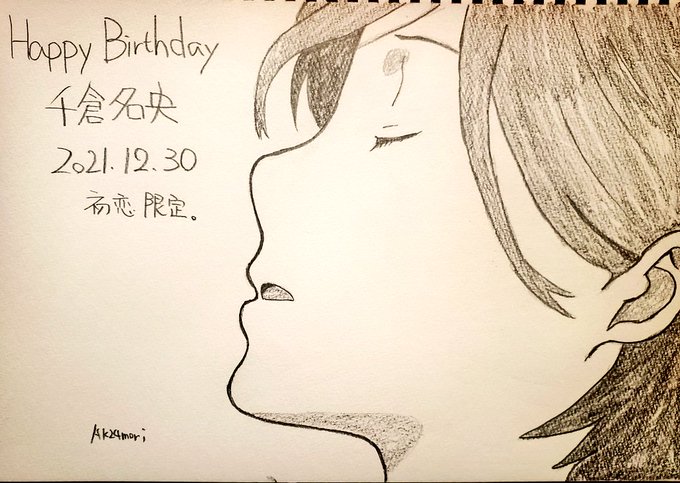 Happy Birthday
千倉名央
2021.12.30
初恋限定。
Akz4mori